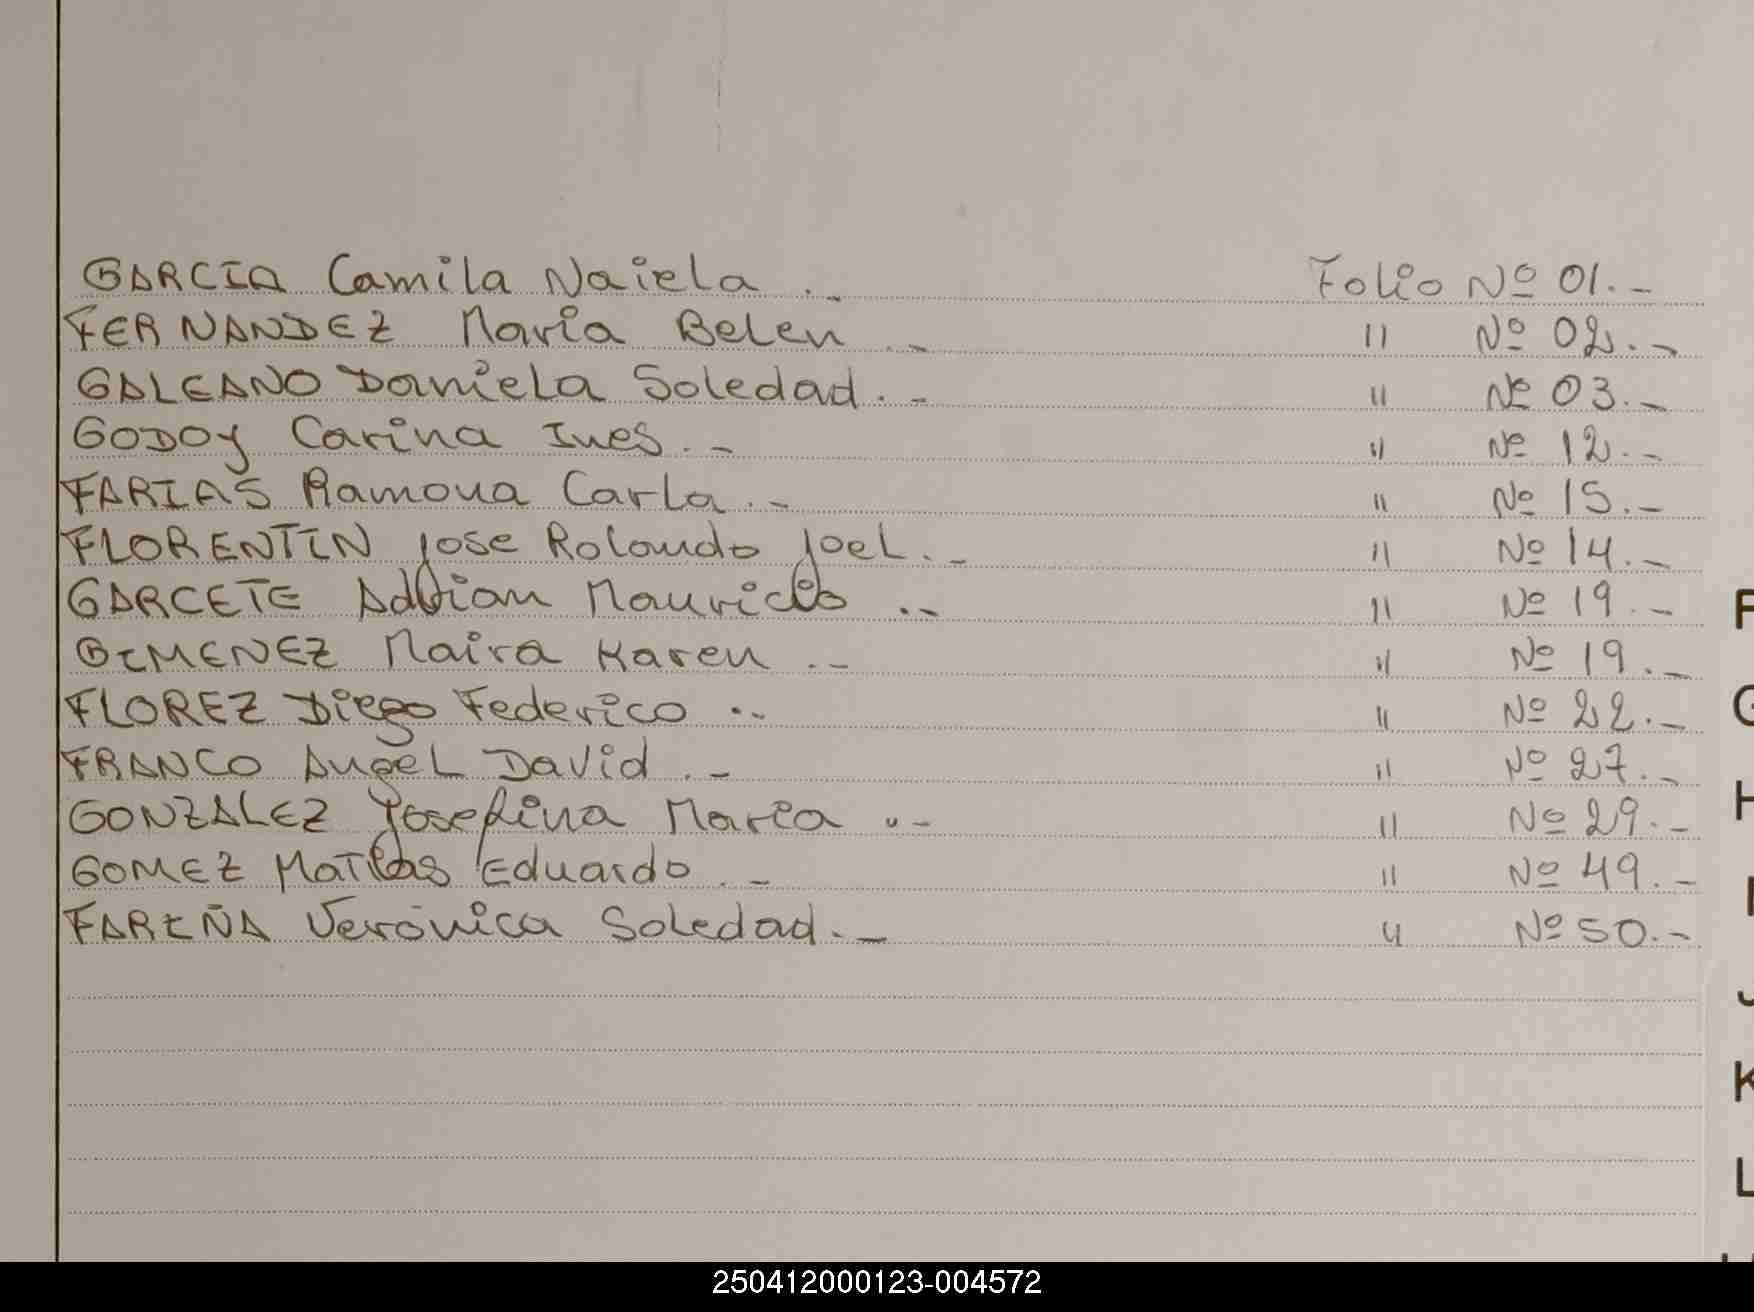 GARCIA Camila Naiela .- Folio Nº 01.-
FERNANDEZ Maria Belen .- " Nº 02.-
GALEANO Daniela Soledad .- " Nº 03.-
GODOY Carina Ines .- " Nº 12.-
FARIAS Ramona Carla .- " Nº 15.-
FLORENTIN Jose Rolando Joel .- " Nº 14.-
GARCETE Adrian Mauricio .- " Nº 19.-
GIMENEZ Maira Karen .- " Nº 19.-
FLOREZ Diego Federico .- " Nº 22.-
FRANCO Angel David .- " Nº 27.-
GONZALEZ Josefina Maria .- " Nº 29.-
GOMEZ Matias Eduardo .- " Nº 49.-
FARIÑA Verónica Soledad .- " Nº 50.-
F
G
H
I
J
K
L
250412000123-004572